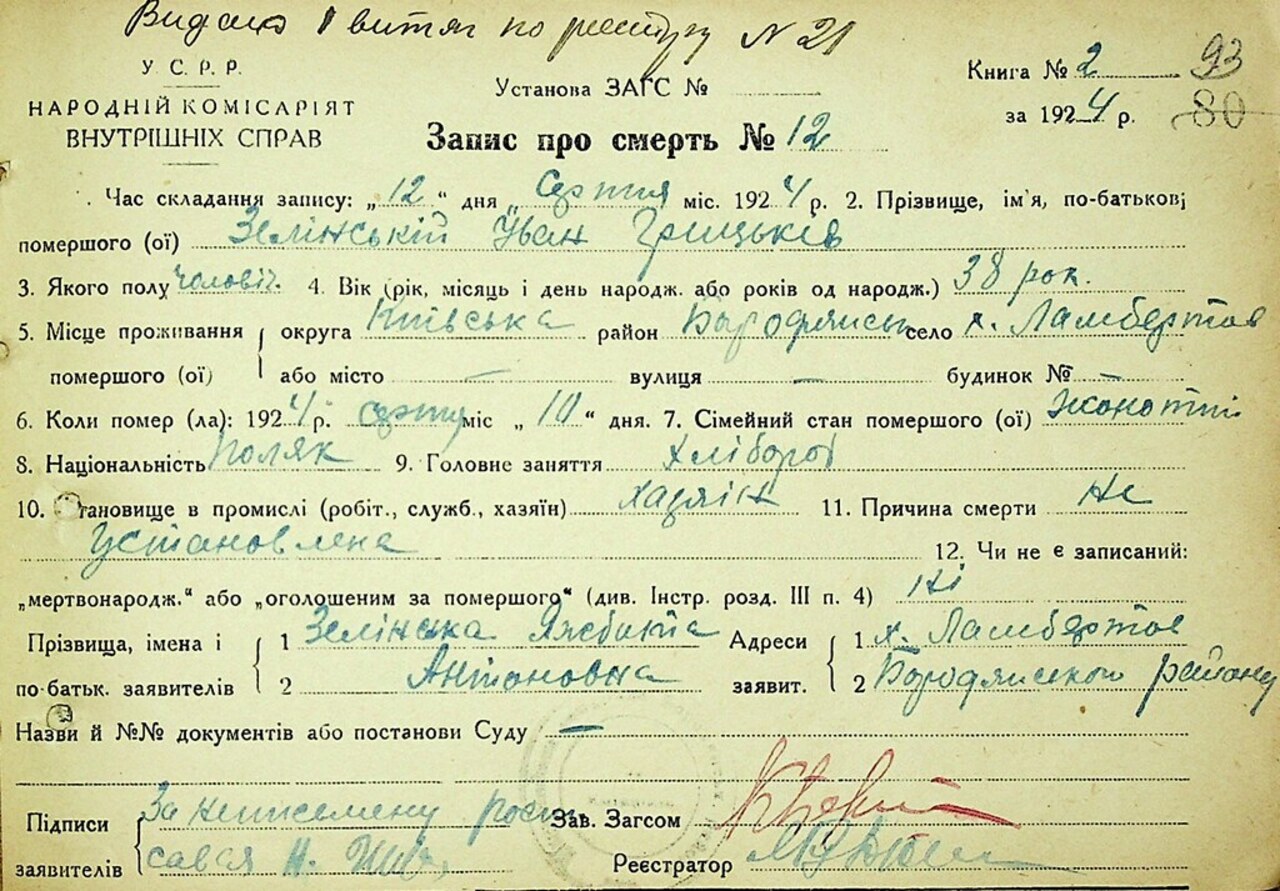 Видано 1 витяг по реєстру N 21
У. С. Р. Р.
НАРОДНІЙ КОМІСАРІЯТ
ВНУТРІШНІХ СПРАВ
Установа ЗАГС №
Книга № 2
93
за 1924 р.
80
Запис про смерть № 12
Час складання запису: „12“ дня „Серпня міс. 1924 р. 2. Прізвище, ім'я, по-батькові
помершого (ої) Зелінській Іван Грицьків
3. Якого полу чоловіч. 4. Вік (рік, місяць і день народж. або років од народж.) 38 рок.
5. Місце проживання округа Київська район Бородянськ село х. Ламбертов
помершого (ої) або місто — вулиця — будинок № —
6. Коли помер (ла): 1924 р. серпня міс „10“ дня. 7. Сімейний стан помершого (ої)
8. Національність поляк 9. Головне заняття хлібороб
10. тановище в промислі (робіт., служб., хазяїн) хазяїн 11. Причина смерти не
установлена 12. Чи не є записаний:
„мертвонародж.“ або „оголошеним за помершого“ (див. Інстр. розд. III п. 4) ні
Прізвища, імена і 1 Зелінська Адреси 1 х. Ламбертов
по-батьк. заявителів 2 Антоновна заявит. 2 Бородянського району
Назви й №№ документів або постанови Суду —
Підписи За неписемену
Зав. Загсом
заявителів
Реєстратор